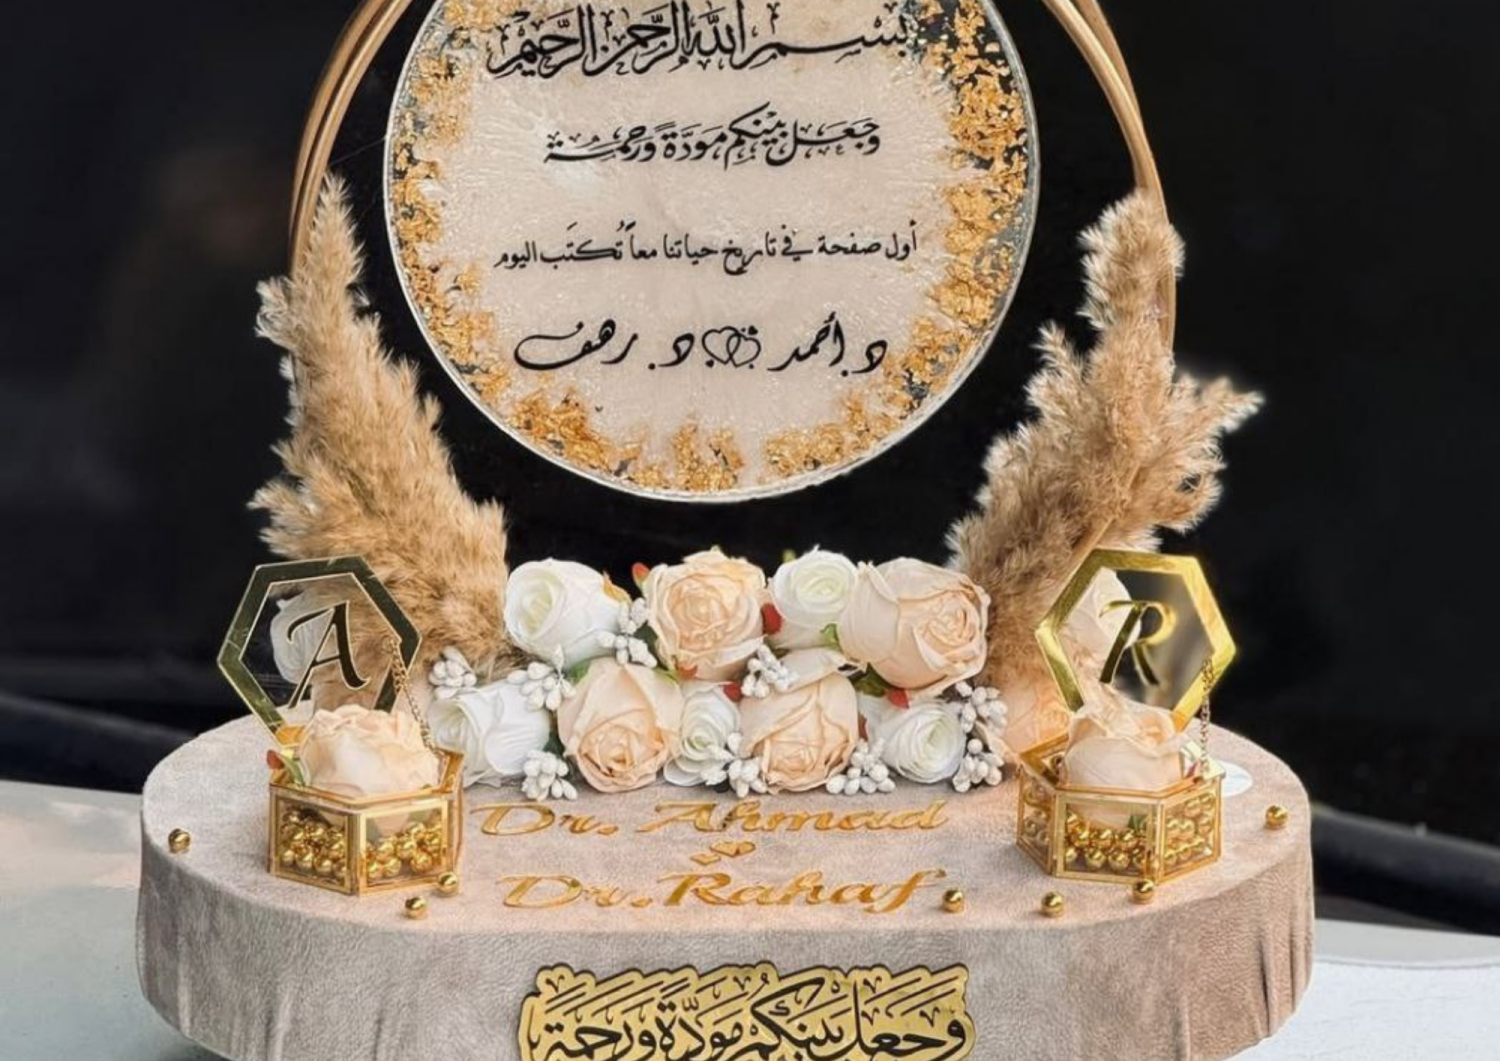 بسم الله الرحمن الرحيم
وجعل بينكم مودة ورحمة
أول صفحة في تاريخ حياتنا معاً تُكتَب اليوم
د. أحمد د. رهف
A
R
Dr. Ahmad
Dr. Rahaf
وَجَعَلَ بَيْنَكُمْ مَوَدَّةً وَرَحْمَةً